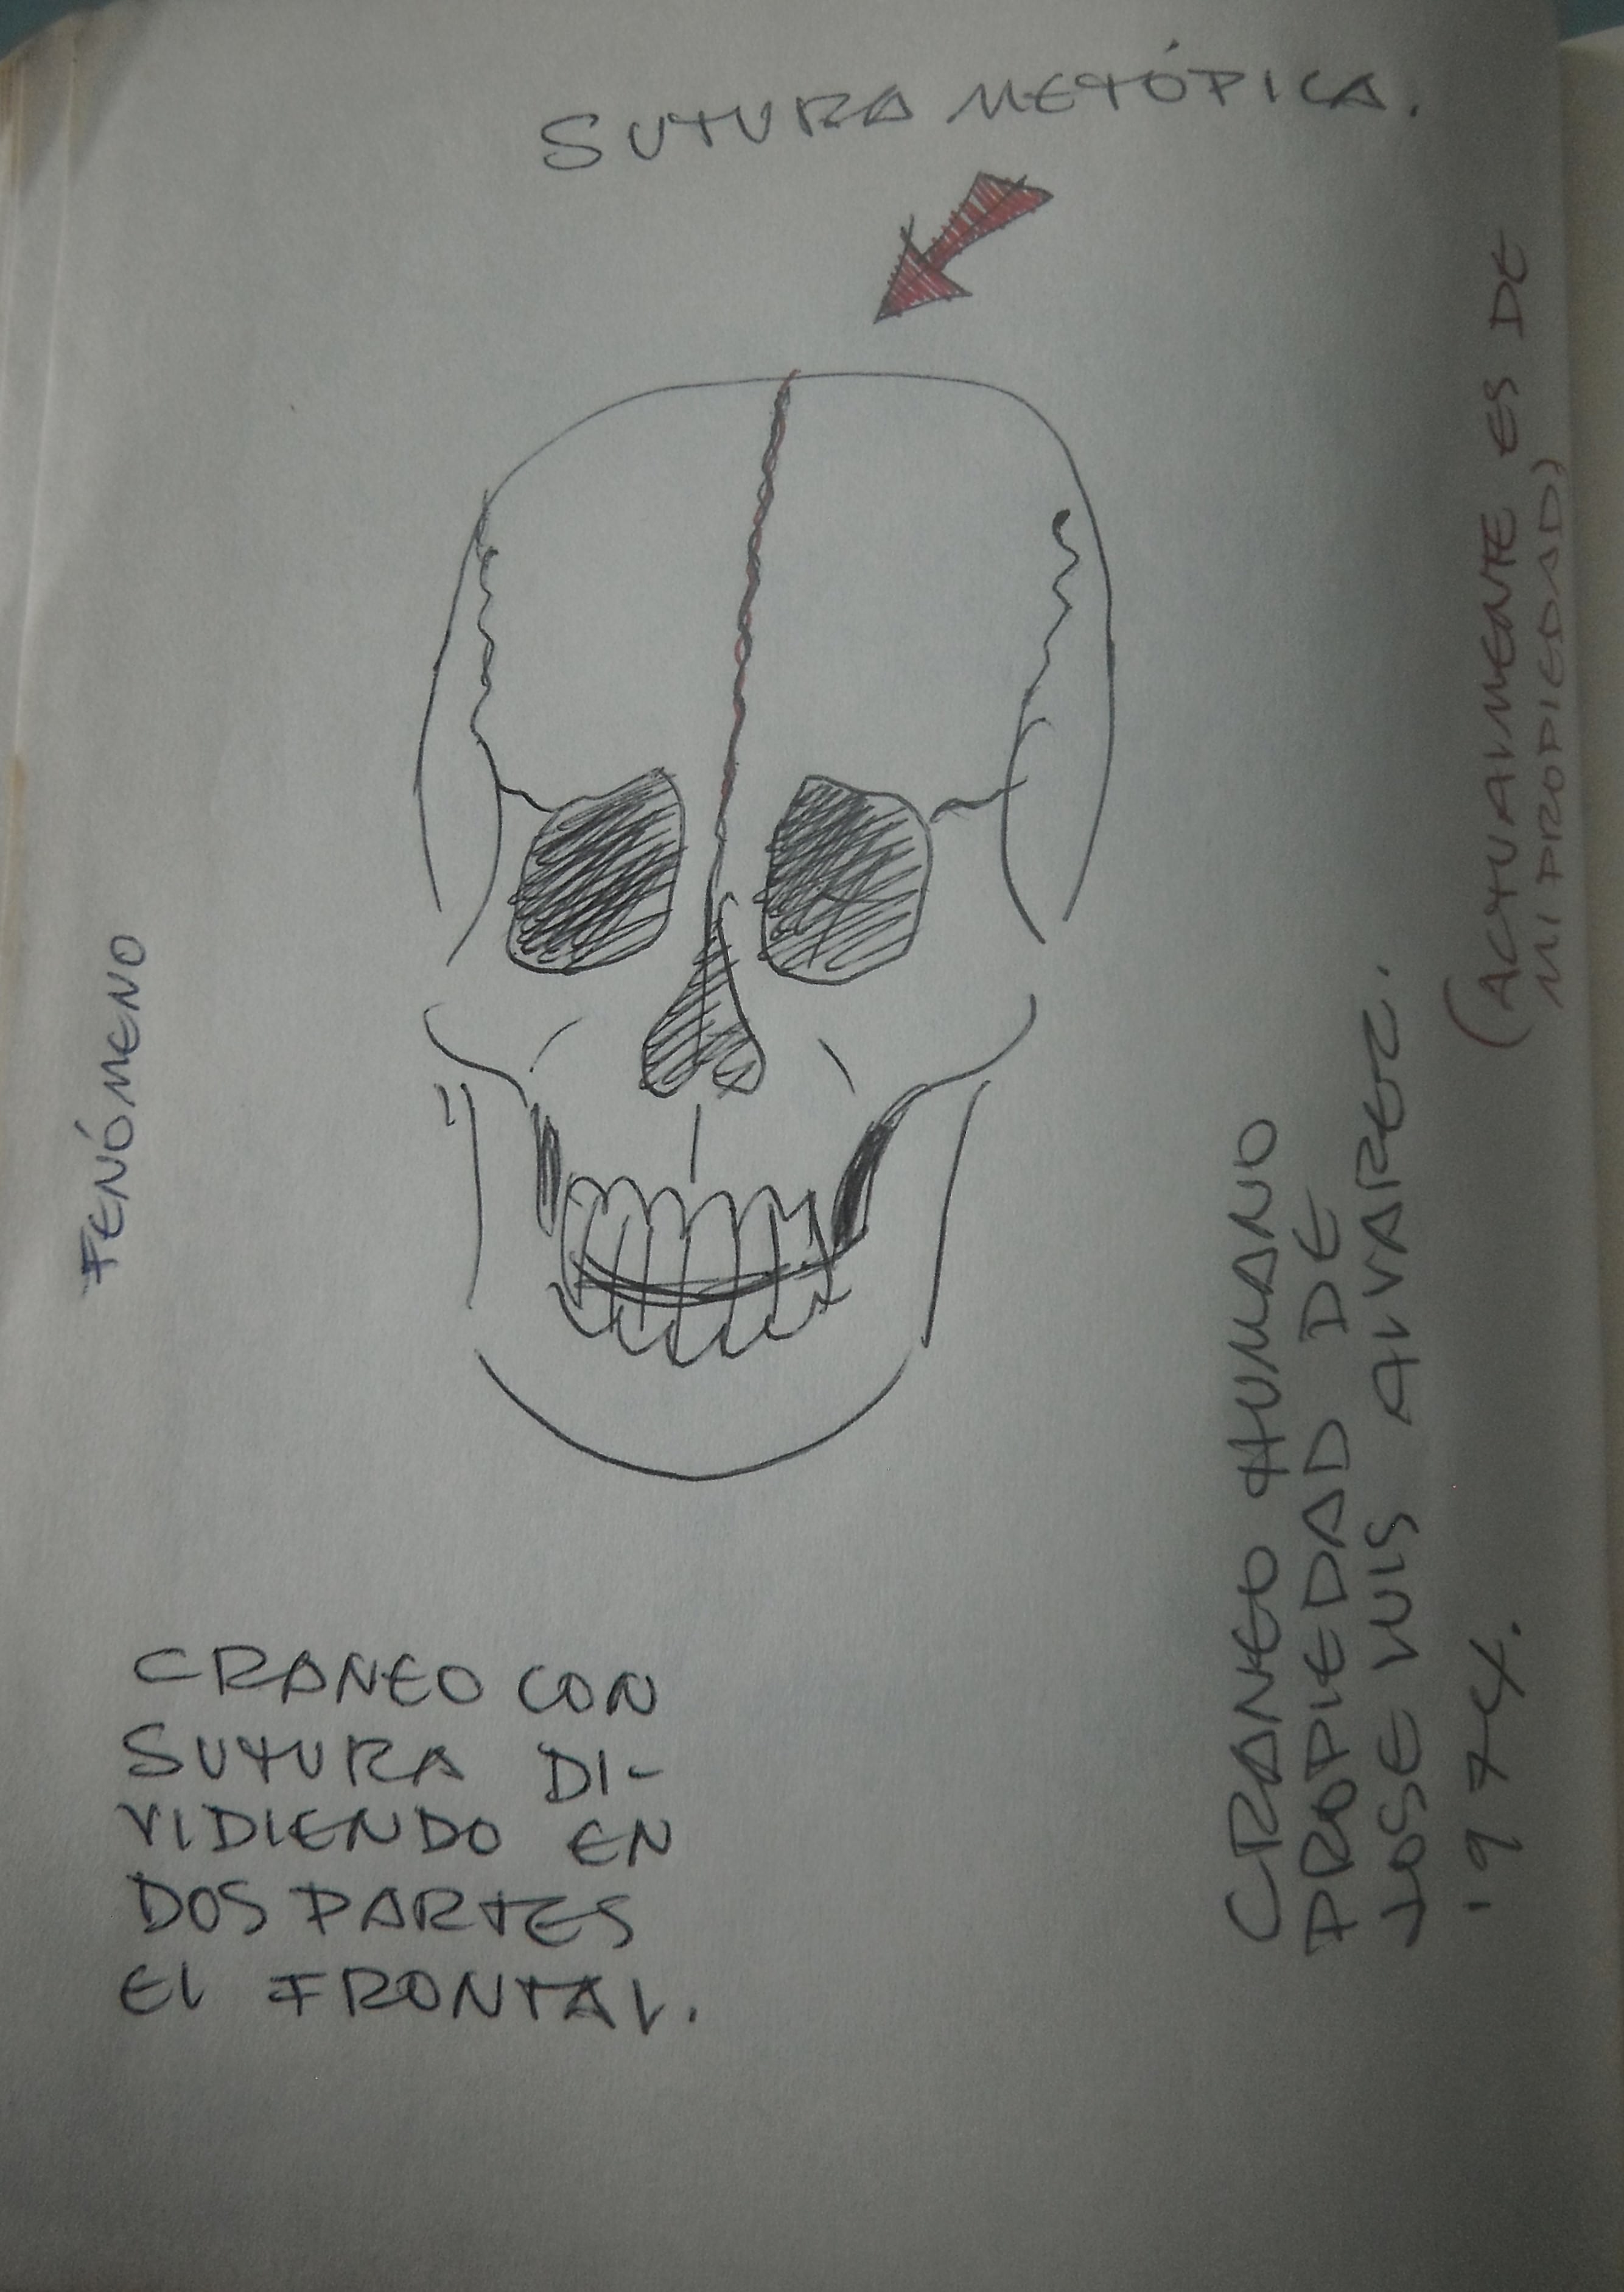 SUTURA METÓPICA.
FENÓMENO
CRANEO CON
SUTURA DI-
VIDIENDO EN
DOS PARTES
EL FRONTAL.
CRANEO HUMANO
PROPIEDAD DE
JOSE LUIS ALVAREZ.
1974.
(ACTUALMENTE ES DE
MI PROPIEDAD)